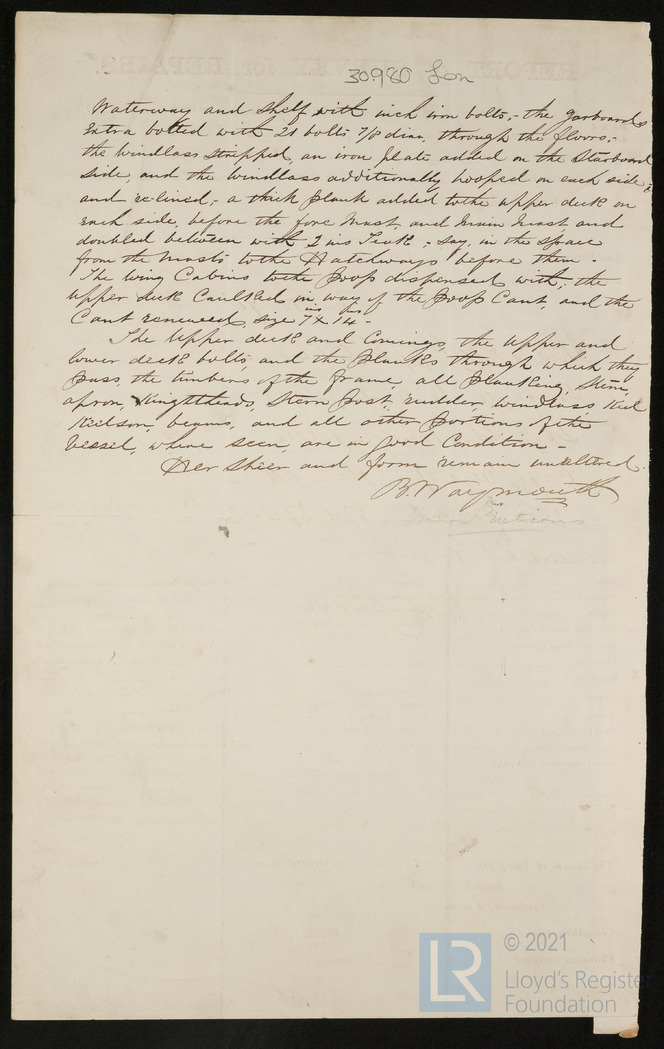 30980 Lon
Waterway and Shelf with inch iron bolts,- the garboards
extra bolted with 21 bolts 7/8 diam, through the floors;-
the windlass stripped, an iron plate added on the Starboard
side, and the windlass additionally hooped on each side &
and re-lined;- a thick plank added to the upper deck on
each side, before the fore Mast, and Main Mast, and
doubled between with 2 ins Teak;- say, in the space
from the Masts to the Hatchways before them -
The Wing Cabins to the Poop dispensed with; the
Upper deck Caulked in way of the Poop Cant, and the
Cant renewed, size 7 ins x 14 ins -
The Upper deck and Comings, the Upper and
lower deck bolts, and the planks through which they
pass, the timbers of the frame, all planking, Stem,
apron, Knightheads, Stern post, rudder, windlass, Keel
Keilson, beams, and all other portions of the
Vessel, where seen, are in good Condition -
Her Sheer and form remain unaltered.
B. Waymouth
© 2021
LR
Lloyd's Register
Foundation